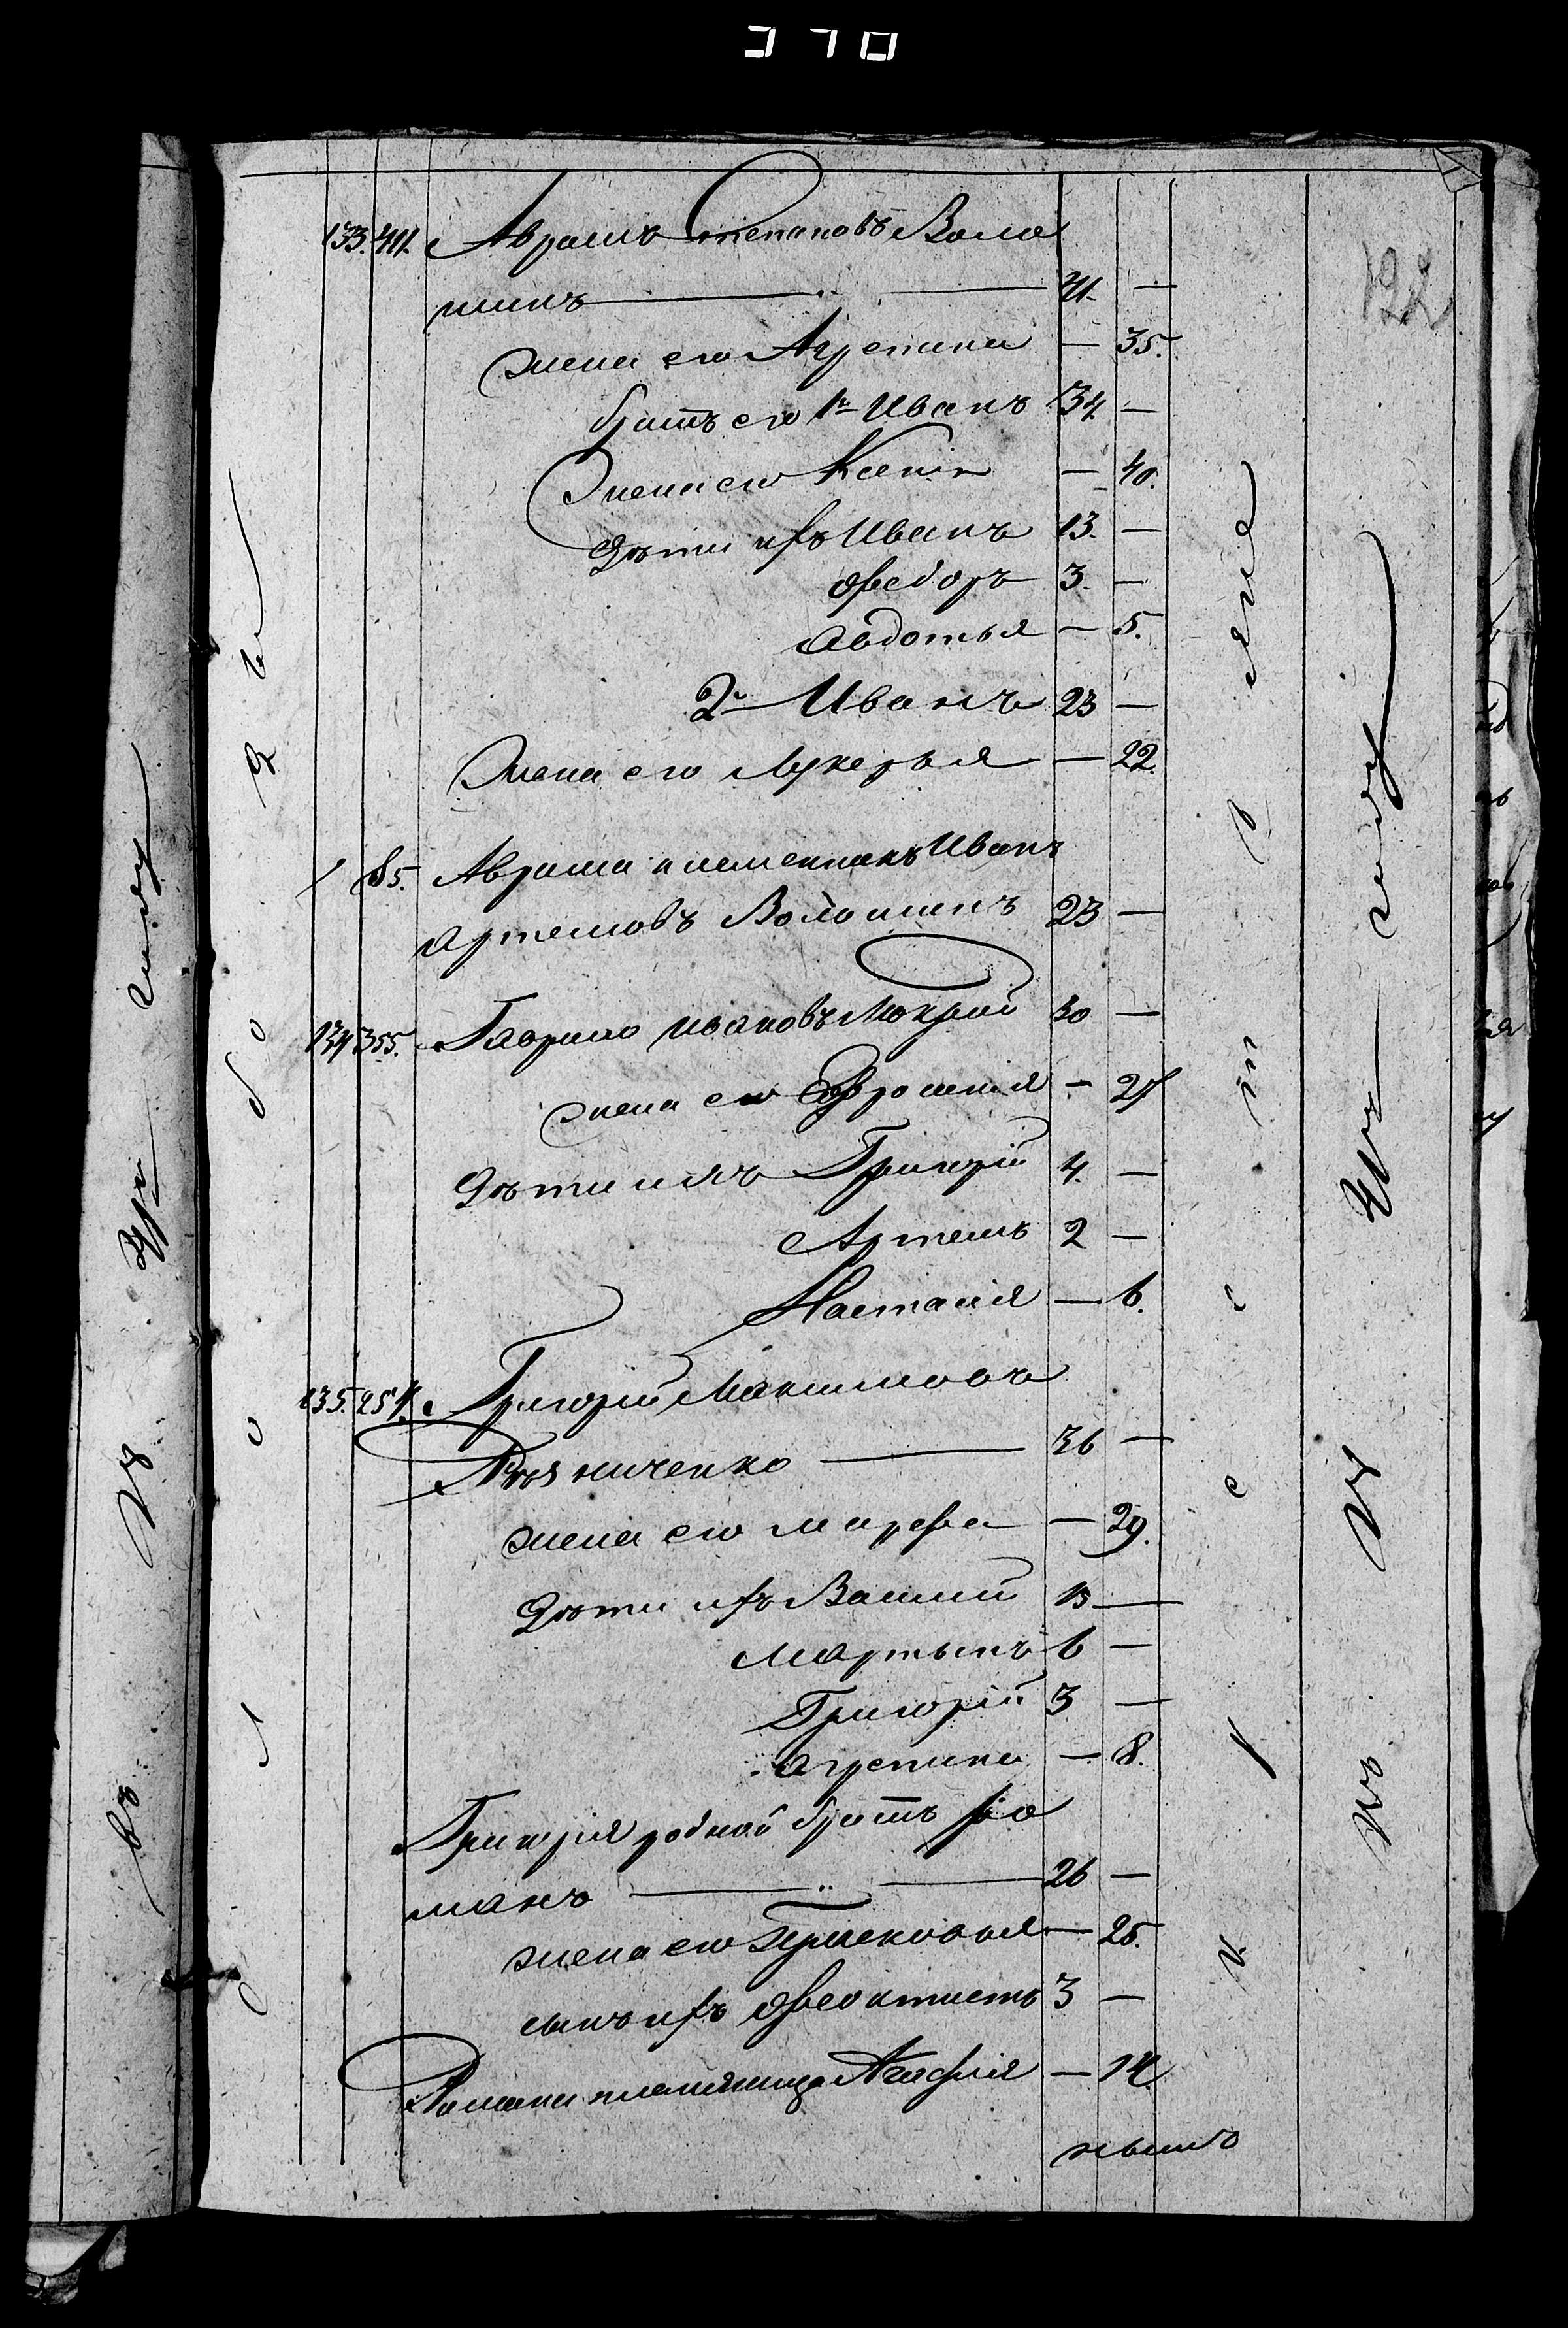 370
133. 411. Аврамъ Степановъ Воло
шинъ 41. —
жена его Агрепина — 35.
братъ его 1й Иванъ 34. —
жена его Ксенія — 40.
дѣти ихъ Иванъ 13. —
Ѳедоръ 3. —
Авдотья — 5.
2й Иванъ 23 —
жена его Лукерья — 22.
85. Аврама племенникъ Иванъ
Артемовъ Волошинъ 23 —
134 355. Гаврило Ивановъ Мокрый 30 —
жена его Ефросинія — 27
дѣти ихъ Григорій 4. —
Артемъ 2 —
Настасія — 6.
135. 257. Григорій Максимовъ
Рѣзниченко 36 —
жена его Марфа — 29.
дѣти ихъ Василій 15 —
Мартынъ 6 —
Григорій 3 —
Агрепина — 8.
Григорія родной братъ Ро
манъ 26 —
жена его Прасковья — 25.
сынъ ихъ Ѳеоктистъ 3 —
Романа племянница Агафія — 14.
слободы